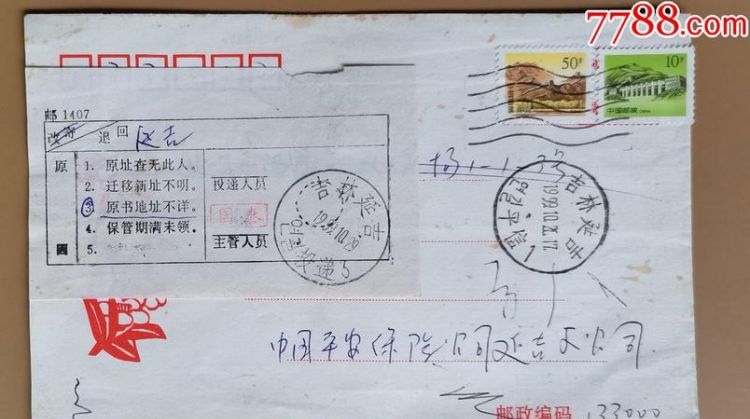 7788.com
50分
10分
中国邮政
邮1407
改寄 退回 延吉
原
1. 原址查无此人。
2. 迁移新址不明。
3. 原书地址不详。
4. 保管期满未领。
5.
因
投递人员
主管人员
吉林延吉
1999.10.20
投递
3
吉林延吉
1999.10.17
1
中国平安保险公司延吉支公司
邮政编码 133000